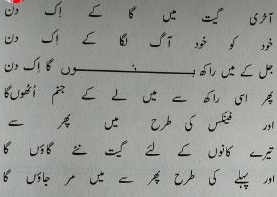 آخری گیت میں گا کے اِک دن
خود کو خود آگ لگا کے اِک دن
جل کے میں راکھ بنوں گا اِک دن
پھر اسی راکھ سے میں لے کے جنم اُٹھوں گا
اور فینکس کی طرح میں پھر سے
تیرے کانوں کے لئے گیت نئے گاؤں گا
اور پہلے کی طرح پھر سے میں مر جاؤں گا